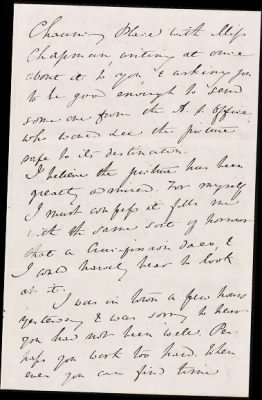 Chauncy Place with Miss
Chapman, writing at once
about it to you, & asking you
to be good enough to send
some one from the A. S. Office
who would see the picture
safe to its destination.
I believe the picture has been
greatly admired. For myself
I must confess it fills me
with the same sort of horror
that a Crucifixion does, &
I could barely bear to look
at it.
I was in town a few hours
yesterday & was sorry to hear
you had not been well. Per-
haps you work too hard. When
ever you can find time